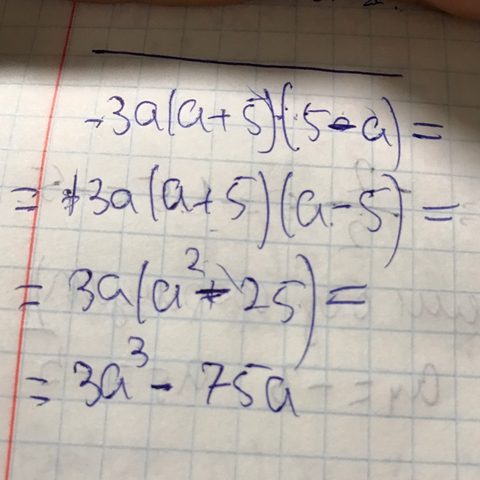 -3a(a+5)(5-a)=
=+3a(a+5)(a-5)=
=3a(a²-25)=
=3a³-75a